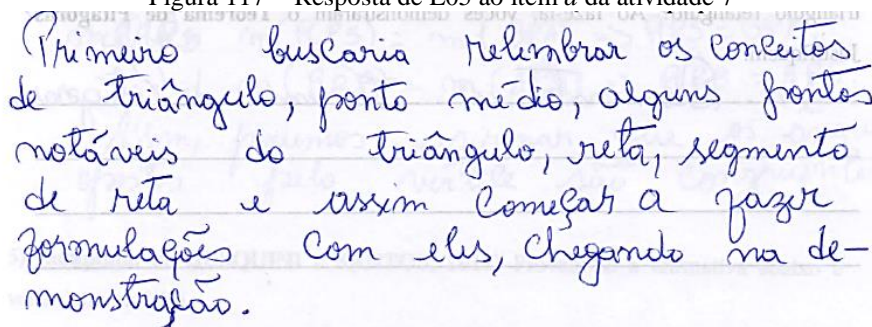 Figura 117 – Resposta de L05 ao item a da atividade 7
Primeiro buscaria relembrar os conceitos
de triângulo, ponto médio, alguns pontos
notáveis do triângulo, reta, segmento
de reta e assim começar a fazer
formulações com eles, chegando na de-
monstração.